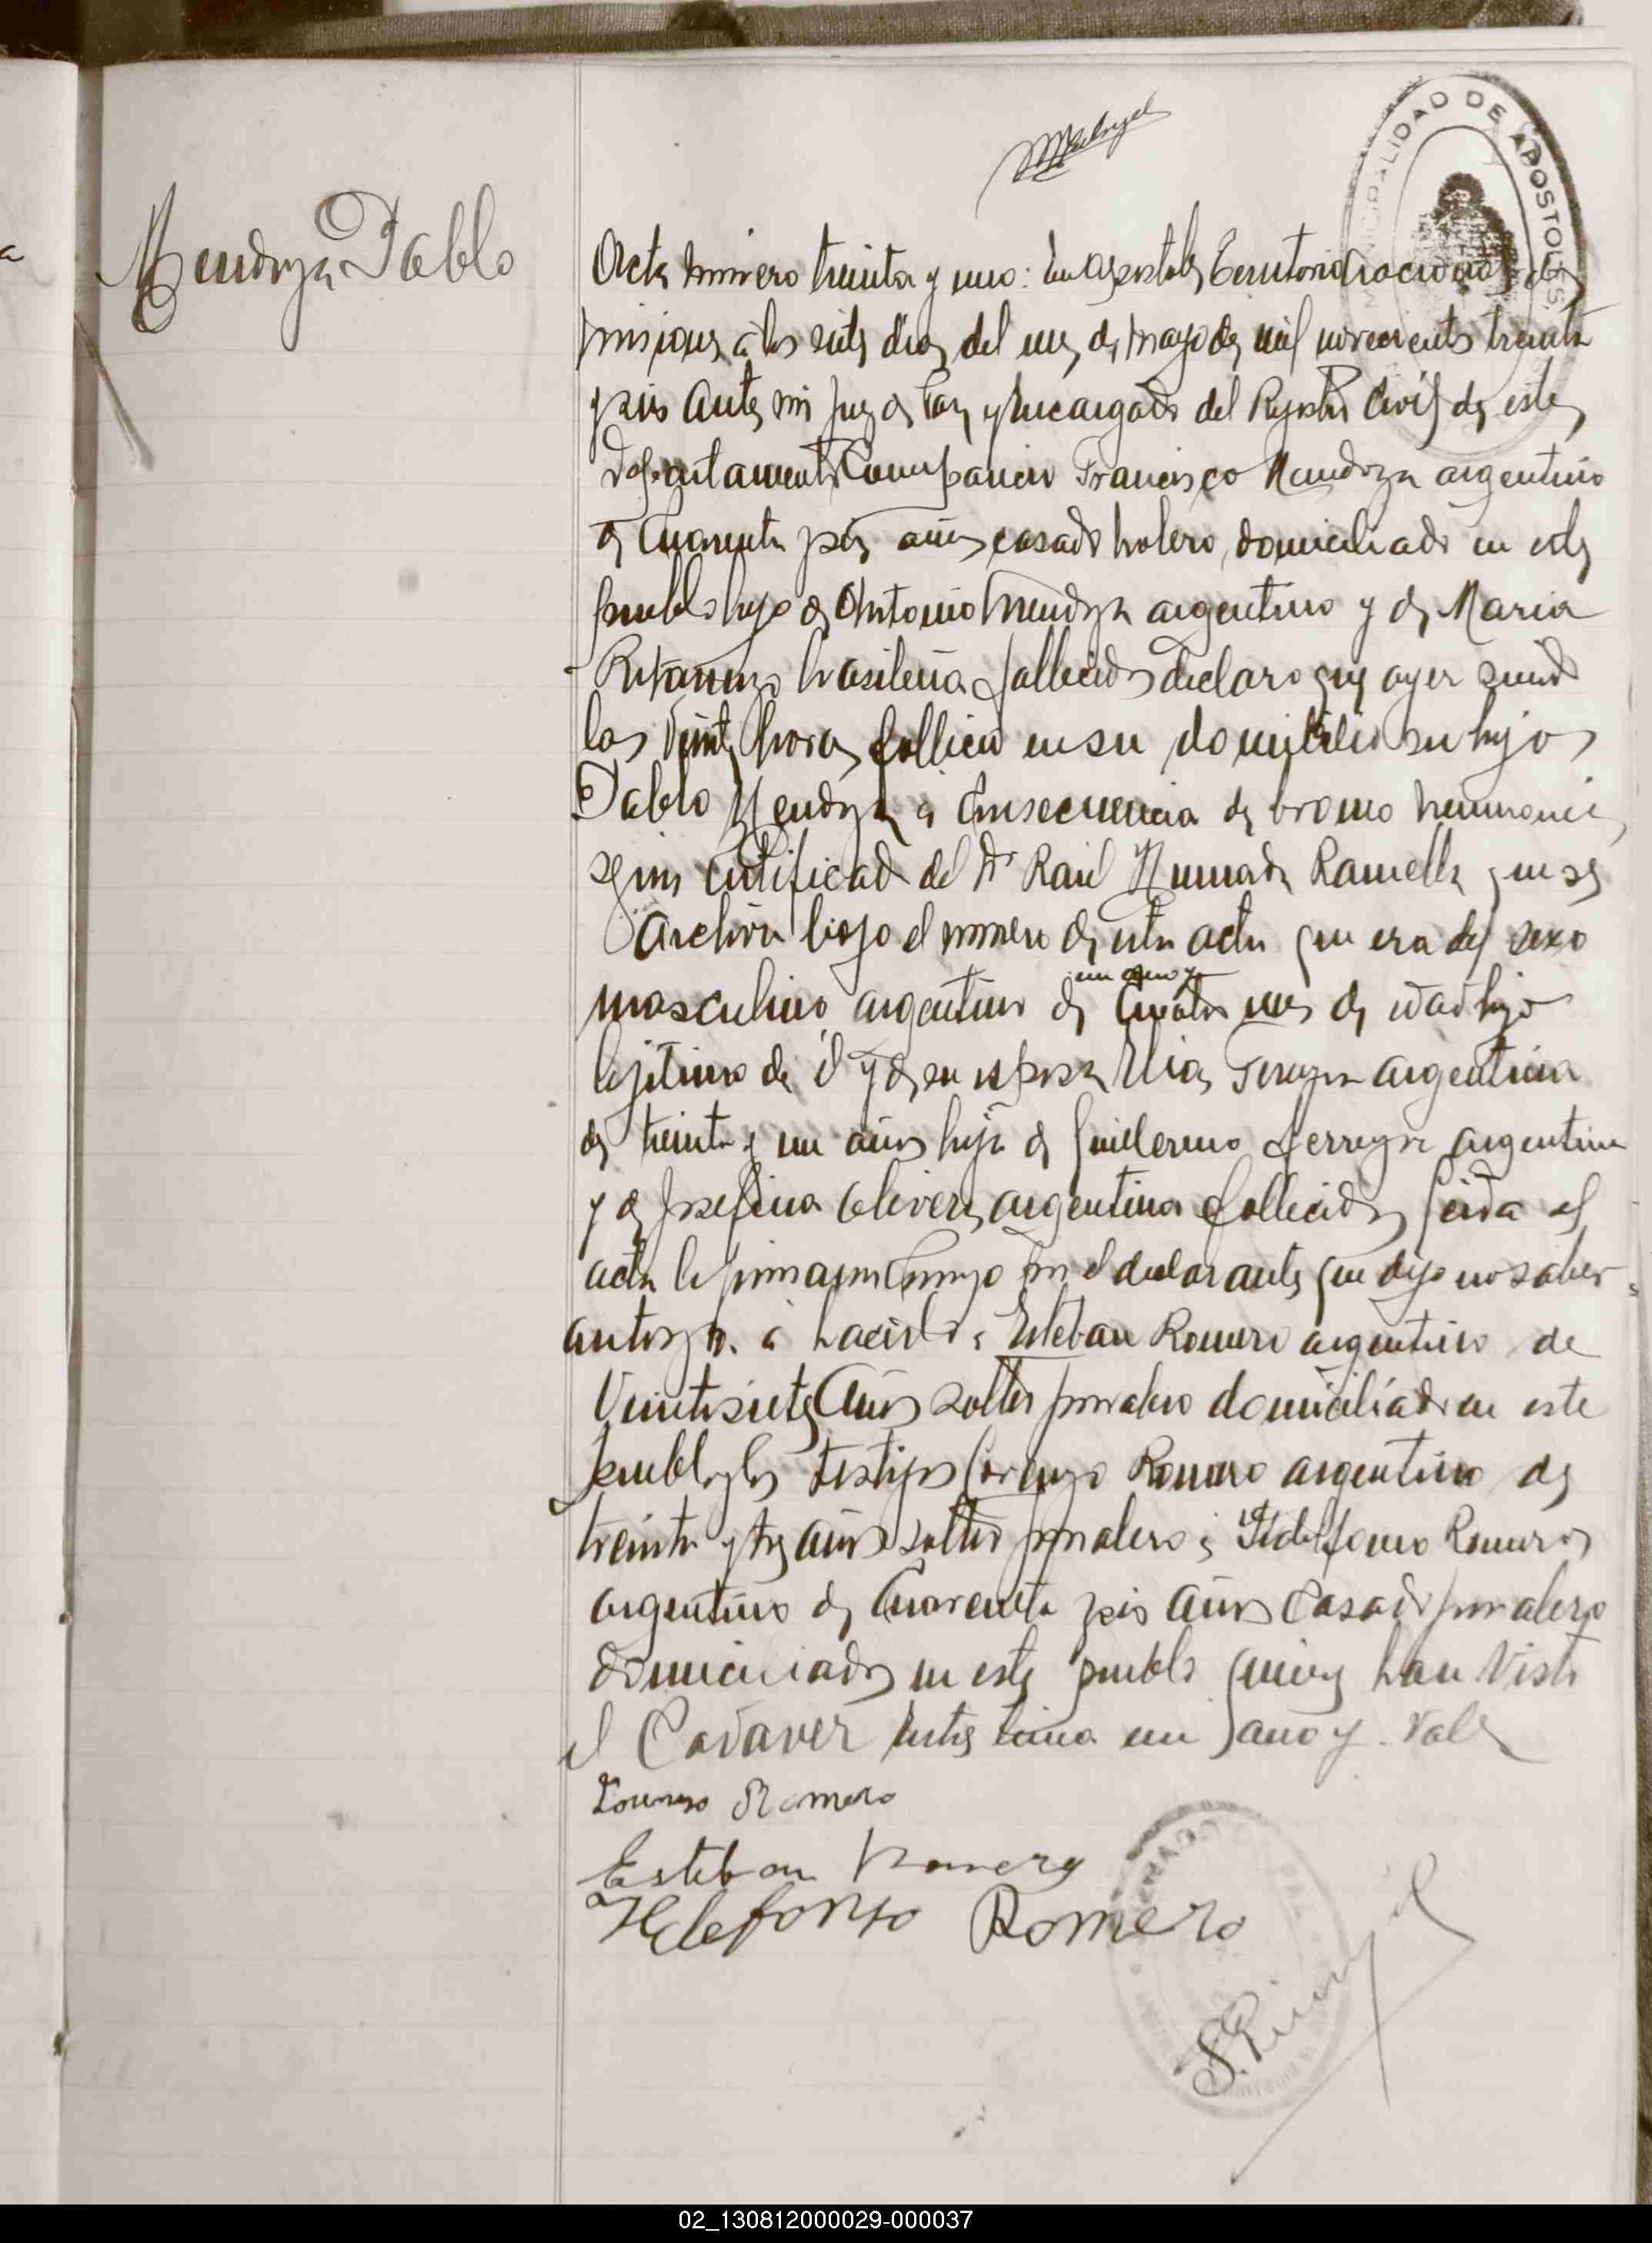 MUNICIPALIDAD DE APOSTOLES
Mendoza Pablo
Acta número treinta y uno: En Apostoles Territorio Nacional de
Misiones á los siete dias del mes de Mayo de mil novecientos treinta
y seis Ante mi Juez de Paz y Encargado del Registro Civil de este
Departamento Comparecio Francisco Mendoza argentino
de Cuarenta y seis años casado, domiciliado en este
pueblo hijo de Antonio Mendoza argentino y de Maria
brasileña fallecidos declaro que ayer siendo
las veinte horas fallecio en su domicilio su hijo
Pablo Mendoza á Consecuencia de bronco neumonia
segun certificado del Dr Raul Ramella que se
Archiva bajo el numero de esta acta que era del sexo
un año y
masculino argentino de Cuatro mes de edad hijo
lejitimo de él y de su esposa argentina
de treinta y un años hija de Guillermo Ferreyra argentino
y de Josefina Olivera argentina fallecidos Leida el
acta la firmaron Conmigo por el declarante que dijo no saber
autorizo á hacerlo á Esteban Romero argentino de
Veintisiete Años soltero jornalero domiciliado en este
pueblo y los testigos Lorenzo Romero argentino de
treinta y tres años soltero jornalero é Ildelfonso Romero
argentino de Cuarenta y seis Años Casado jornalero
domiciliados en este pueblo quienes han Visto
el Cadaver Entre linea un año y. Vale
Lorenzo Romero
Esteban Romero
Ildefonso Romero
02_130812000029-000037